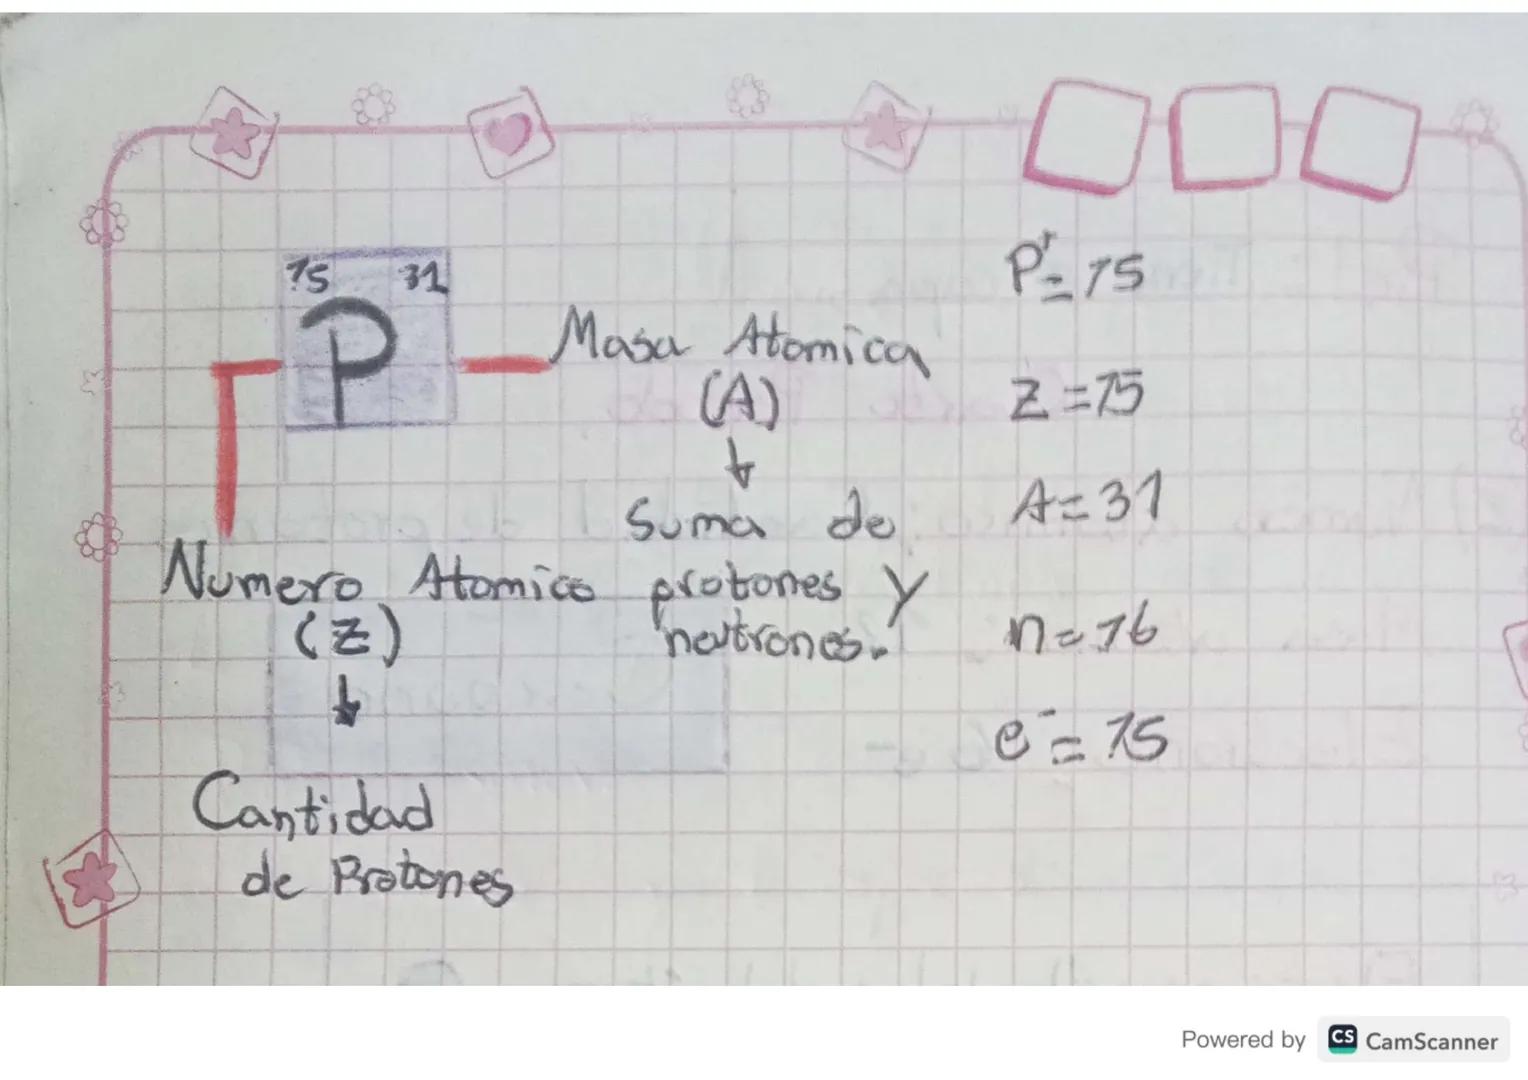 15 31
P
Masa Atomica
(A)
Suma de
protones y
neutrones.
Numero Atomico
(Z)
Cantidad
de Protones
P+= 15
Z = 15
A = 31
n = 16
e- = 15
Powered by CS CamScanner